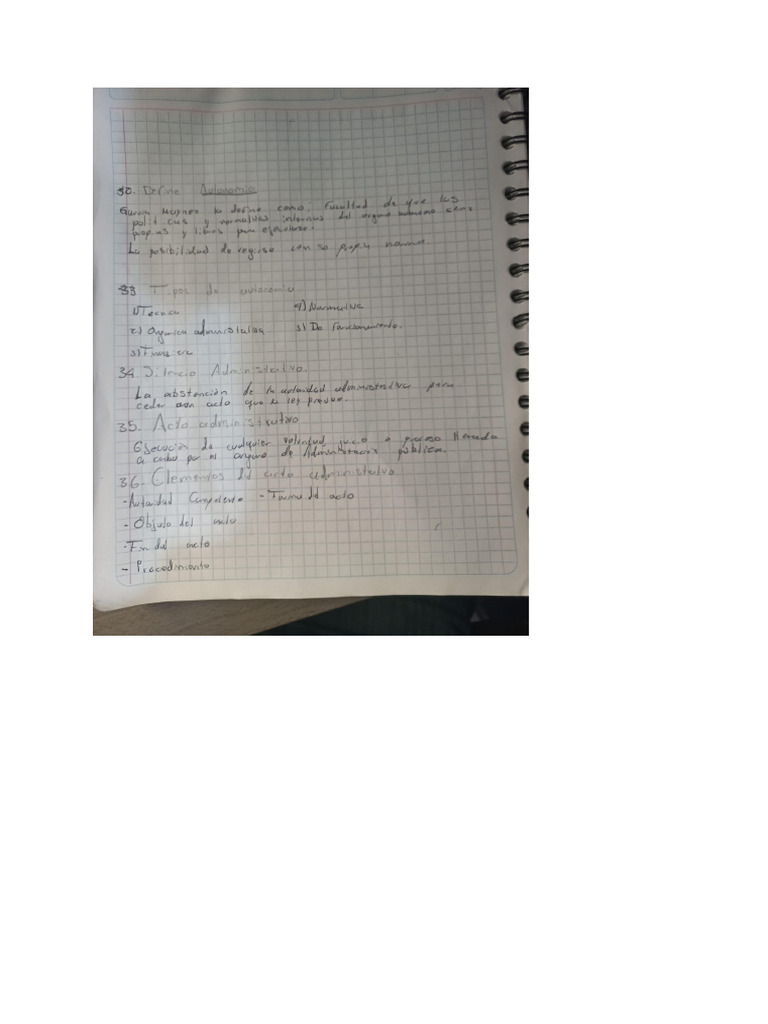 30. Define Autonomia
Garcia Maynez la define como: Facultad de que las
politicas y normativas internas del organo autonomo sean
propias y libres para ejercerse.
La posibilidad de regirse con su propia norma
33 Tipos de autonomia
1) Tecnica 4) Normativa
2) Organica administrativa 5) De funcionamiento.
3) Financiera
34. Silencio Administrativo.
La abstención de la autoridad administrativa para
ceder con acto que la ley preveé.
35. Acto administrativo
Ejecución de cualquier voluntad, juicio o proceso llevada
a cabo por el organo de Administración pública.
36. Elementos del acto administrativo
- Autoridad Competente - Forma del acto
- Objeto del acto
- Fin del acto
- Procedimiento